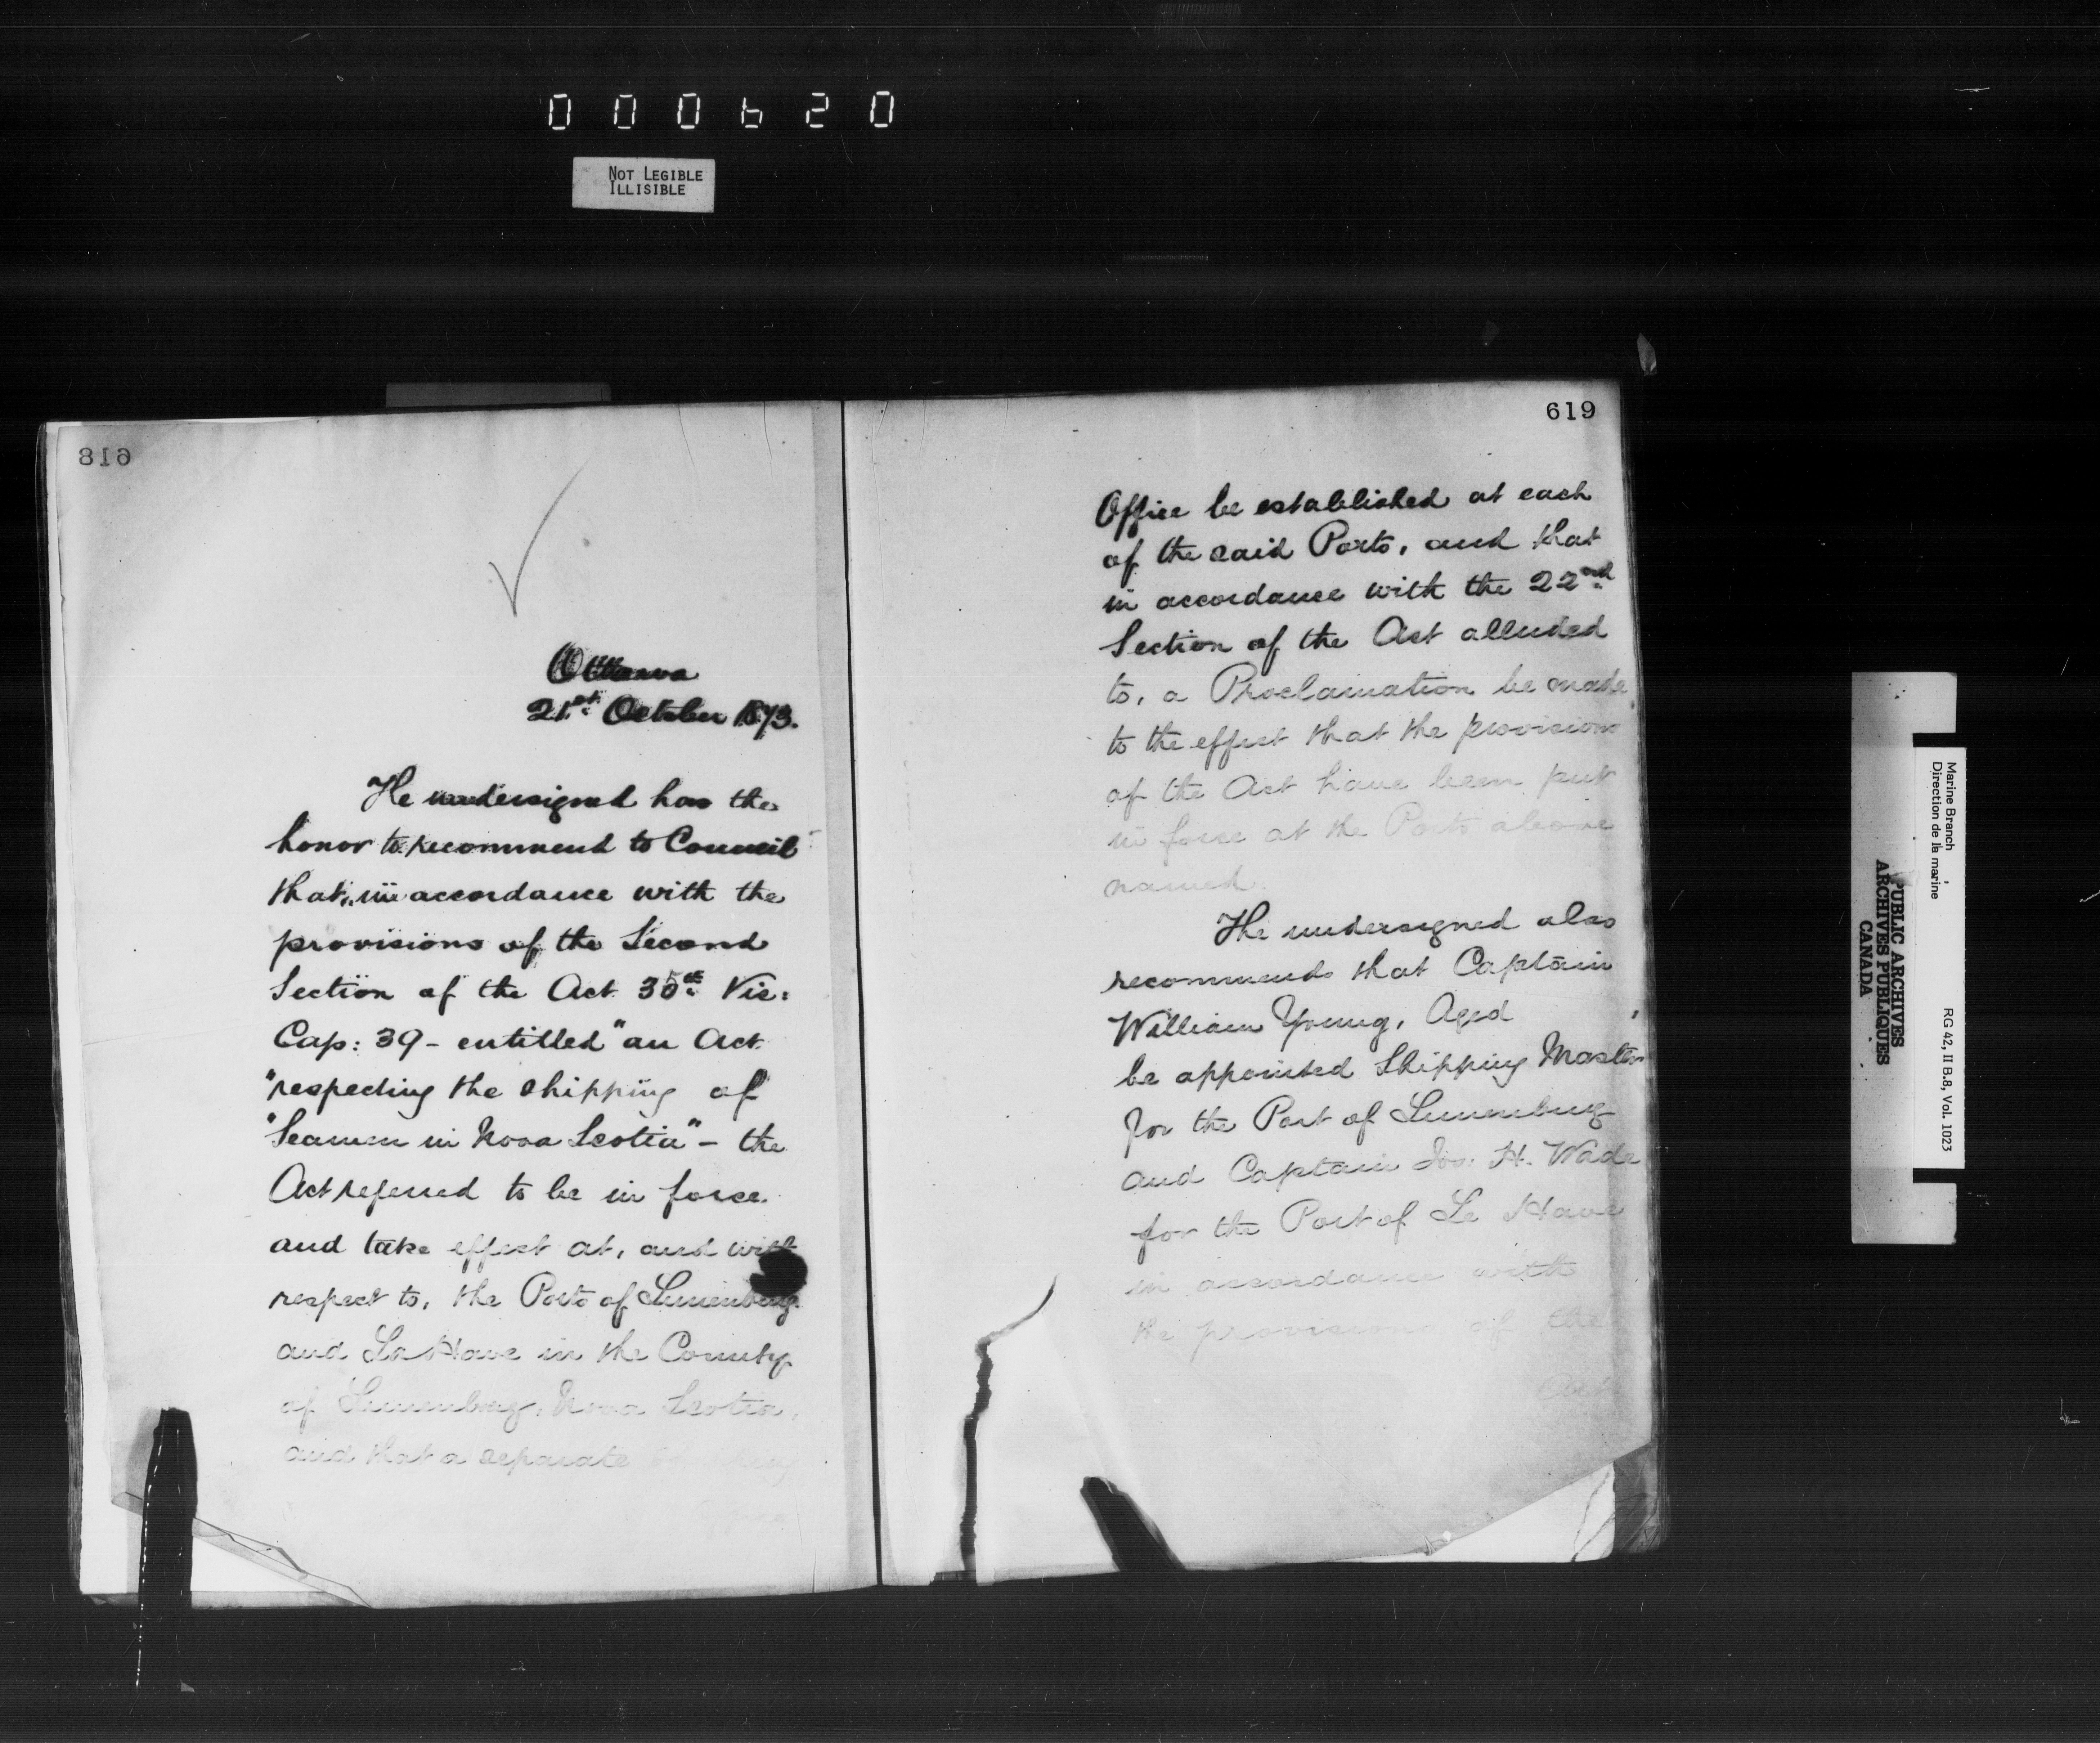 000620
NOT LEGIBLE
ILLISIBLE
618
Ottawa
21st October 1873.
The undersigned has the
honor to recommend to Council
that, in accordance with the
provisions of the Second
Section of the Act 35th Vic:
Cap: 39 - entitled "an Act
"respecting the shipping of
"Seamen in Nova Scotia" - the
Act referred to be in force
and take effect at, and with
respect to, the Ports of Lunenburg
and La Have in the County
of Lunenburg, Nova Scotia,
and that a separate Shipping
Office
619
Office be established at each
of the said Ports, and that
in accordance with the 22nd
Section of the Act alluded
to, a Proclamation be made
to the effect that the provisions
of the Act have been put
in force at the Ports above
named.
The undersigned also
recommends that Captain
William Young, Aged
be appointed Shipping Master
for the Port of Lunenburg
and Captain H. Wade
for the Port of Le Have
in accordance with
the provisions of the
Act
Marine Branch
Direction de la marine
RG 42, II B.8, Vol. 1023
PUBLIC ARCHIVES
ARCHIVES PUBLIQUES
CANADA